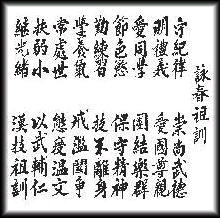 詠春祖訓
守紀律 崇尚武德
明禮義 愛國尊親
愛同學 團結樂群
節色慾 保守精神
勤練習 技不離身
學養氣 戒濫鬥爭
常處世 態度溫文
扶弱小 以武輔仁
繼光緒 漢持祖訓